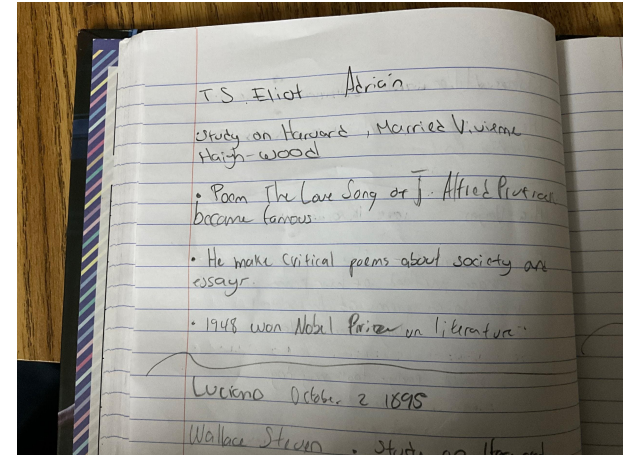 T.S. Eliot Adrian
Study on Harvard, Married Vivienne
Haigh-wood
• Poem The Love Song of J. Alfred
became famous
• He make critical poems about society and
essays.
• 1948 won Nobel Prize on literature
Luciano October 2 1895
Wallace Steven • Study on